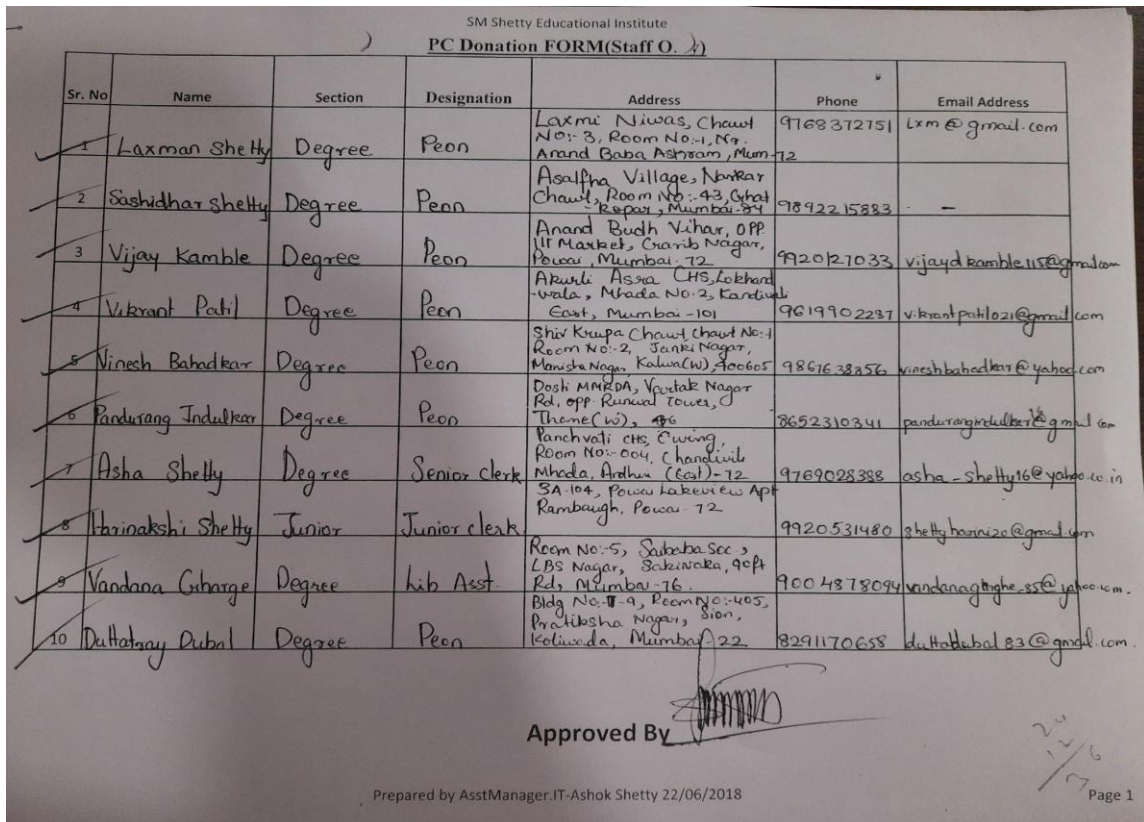 SM Shetty Educational Institute
PC Donation FORM(Staff O.
Sr. No Name Section Designation Address Phone Email Address
1 Laxman Shetty Degree Peon Laxmi Niwas, Chawl No:- 3, Room No:-1, Nr. Anand Baba Ashram, Mum-72 9768372751 Lxm@gmail.com
2 Sashidhar Shetty Degree Peon Asalfha Village, Narkar Chawl, Room No:-43, Ghat-Kopar, Mumbai-84 9892215883 -
3 Vijay Kamble Degree Peon Anand Budh Vihar, OPP. Market, Garib Nagar, Powai, Mumbai-72 9920127033 vijaydkamble115@gmail.com
4 Vikrant Patil Degree Peon Akurli Asra CHS, Lokhand-wala, Mhada No.2, Kandivali East, Mumbai-101 9619902287 vikrantpatil021@gmail.com
5 Vinesh Bahadkar Degree Peon Shiv Krupa Chawl, Chawl No:-1 Room No:-2, Janki Nagar, Manisha Nagar, Kalwa(W), 400605 9861638356 vineshbahadkar@yahoo.com
6 Pandurang Indulkar Degree Peon Dosti MMRDA, Vartak Nagar Rd, opp. Runwal Tower, Thane(W), 9652310341 pandurangindulkar@gmail.com
7 Asha Shetty Degree Senior Clerk Panchvati CHS, C wing, Room No:-004, Chandivili Mhada, Andheri (East)-72 9769028388 asha-shetty16@yahoo.co.in
8 Harinakshi Shetty Junior Junior clerk 3A-104, Powai Lakeview Apt Rambaugh, Powai-72 9920531480 shettyharini20@gmail.com
9 Vandana Gharge Degree Lib Asst. Room No:-5, Saibaba Soc, LBS Nagar, Sakinaka, 90ft Rd, Mumbai-76. 9004878094 vandanagharghe_85@yahoo.com.
10 Duttatray Dubal Degree Peon Bldg No:- -9, Room No:-405, Pratiksha Nagar, Sion, Koliwada, Mumbai-22 8291170658 duttadubal83@gmail.com.
Approved By
Prepared by AsstManager.IT-Ashok Shetty 22/06/2018
Page 1